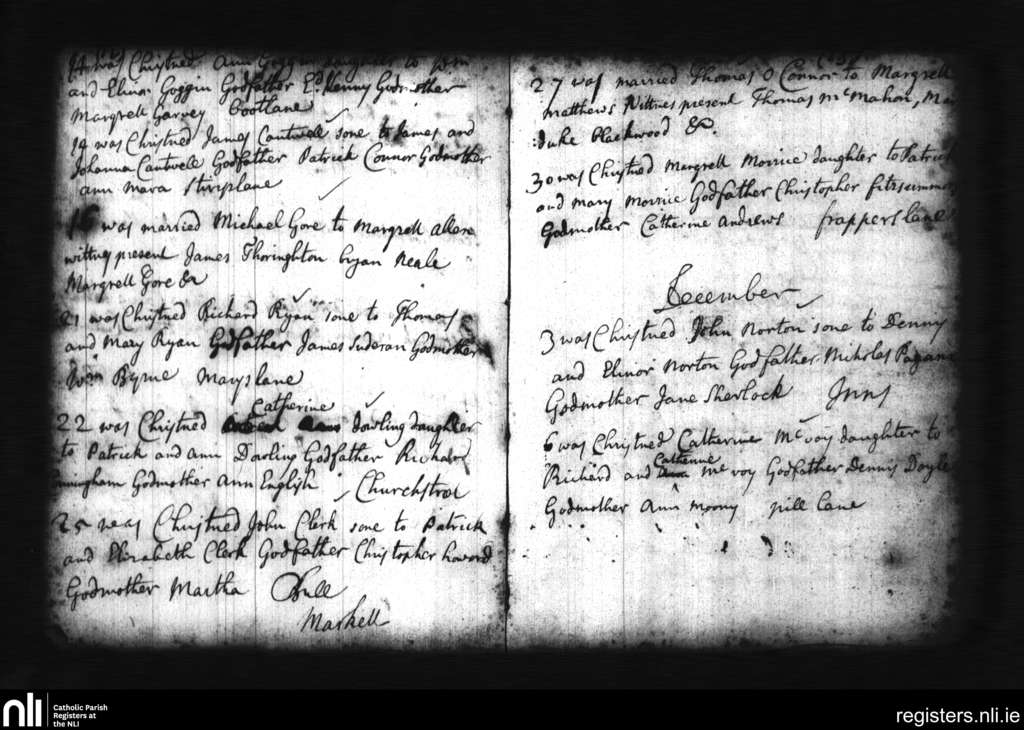 was Christned Ann Goggin daughter to John
and Elinor Goggin Godfather Ed. Kenny Godmother
Margrett Garvey Bootlane
14 was Christned James Cantwell sone to James and
Johanna Cantwell Godfather Patrick Connor Godmother
ann Mara Stirrplane
16 was married Michael Gore to Margrett allen
wittness present James Thoringhton bryan Neale
Margrett Gore &c
21 was Christned Richard Ryan sone to Thomas
and Mary Ryan Godfather James Suderan Godmother
Byrne Maryslane
Catherine
22 was Christned Dowling daughter
to Patrick and ann Dowling Godfather Richard
Godmother Ann English Churchstreet
25 was Christned John Clerk sone to Patrick
and Elizabeth Clerk Godfather Christopher howard
Godmother Martha Bull
Markett
27 was married Thomas O Connor to Margrett
Matthews Wittness present Thomas McMahon, Mar
:duke Blackwood &c.
30 was Christned Margrett Morrice daughter to Patrick
and Mary Morrice Godfather Christopher fitzsimmons
Godmother Catherine Andrews frapperslane
December
3 was Christned John Norton sone to Denny
and Elinor Norton Godfather Nicholas Pagan
Godmother Jane Sherlock Inns
6 was Christned Catherine McVoy daughter to
Catherine
Richard and Ann McVoy Godfather Denny Doyle
Godmother Ann Moony pill Lane
nli
Catholic Parish
Registers at
the NLI
registers.nli.ie